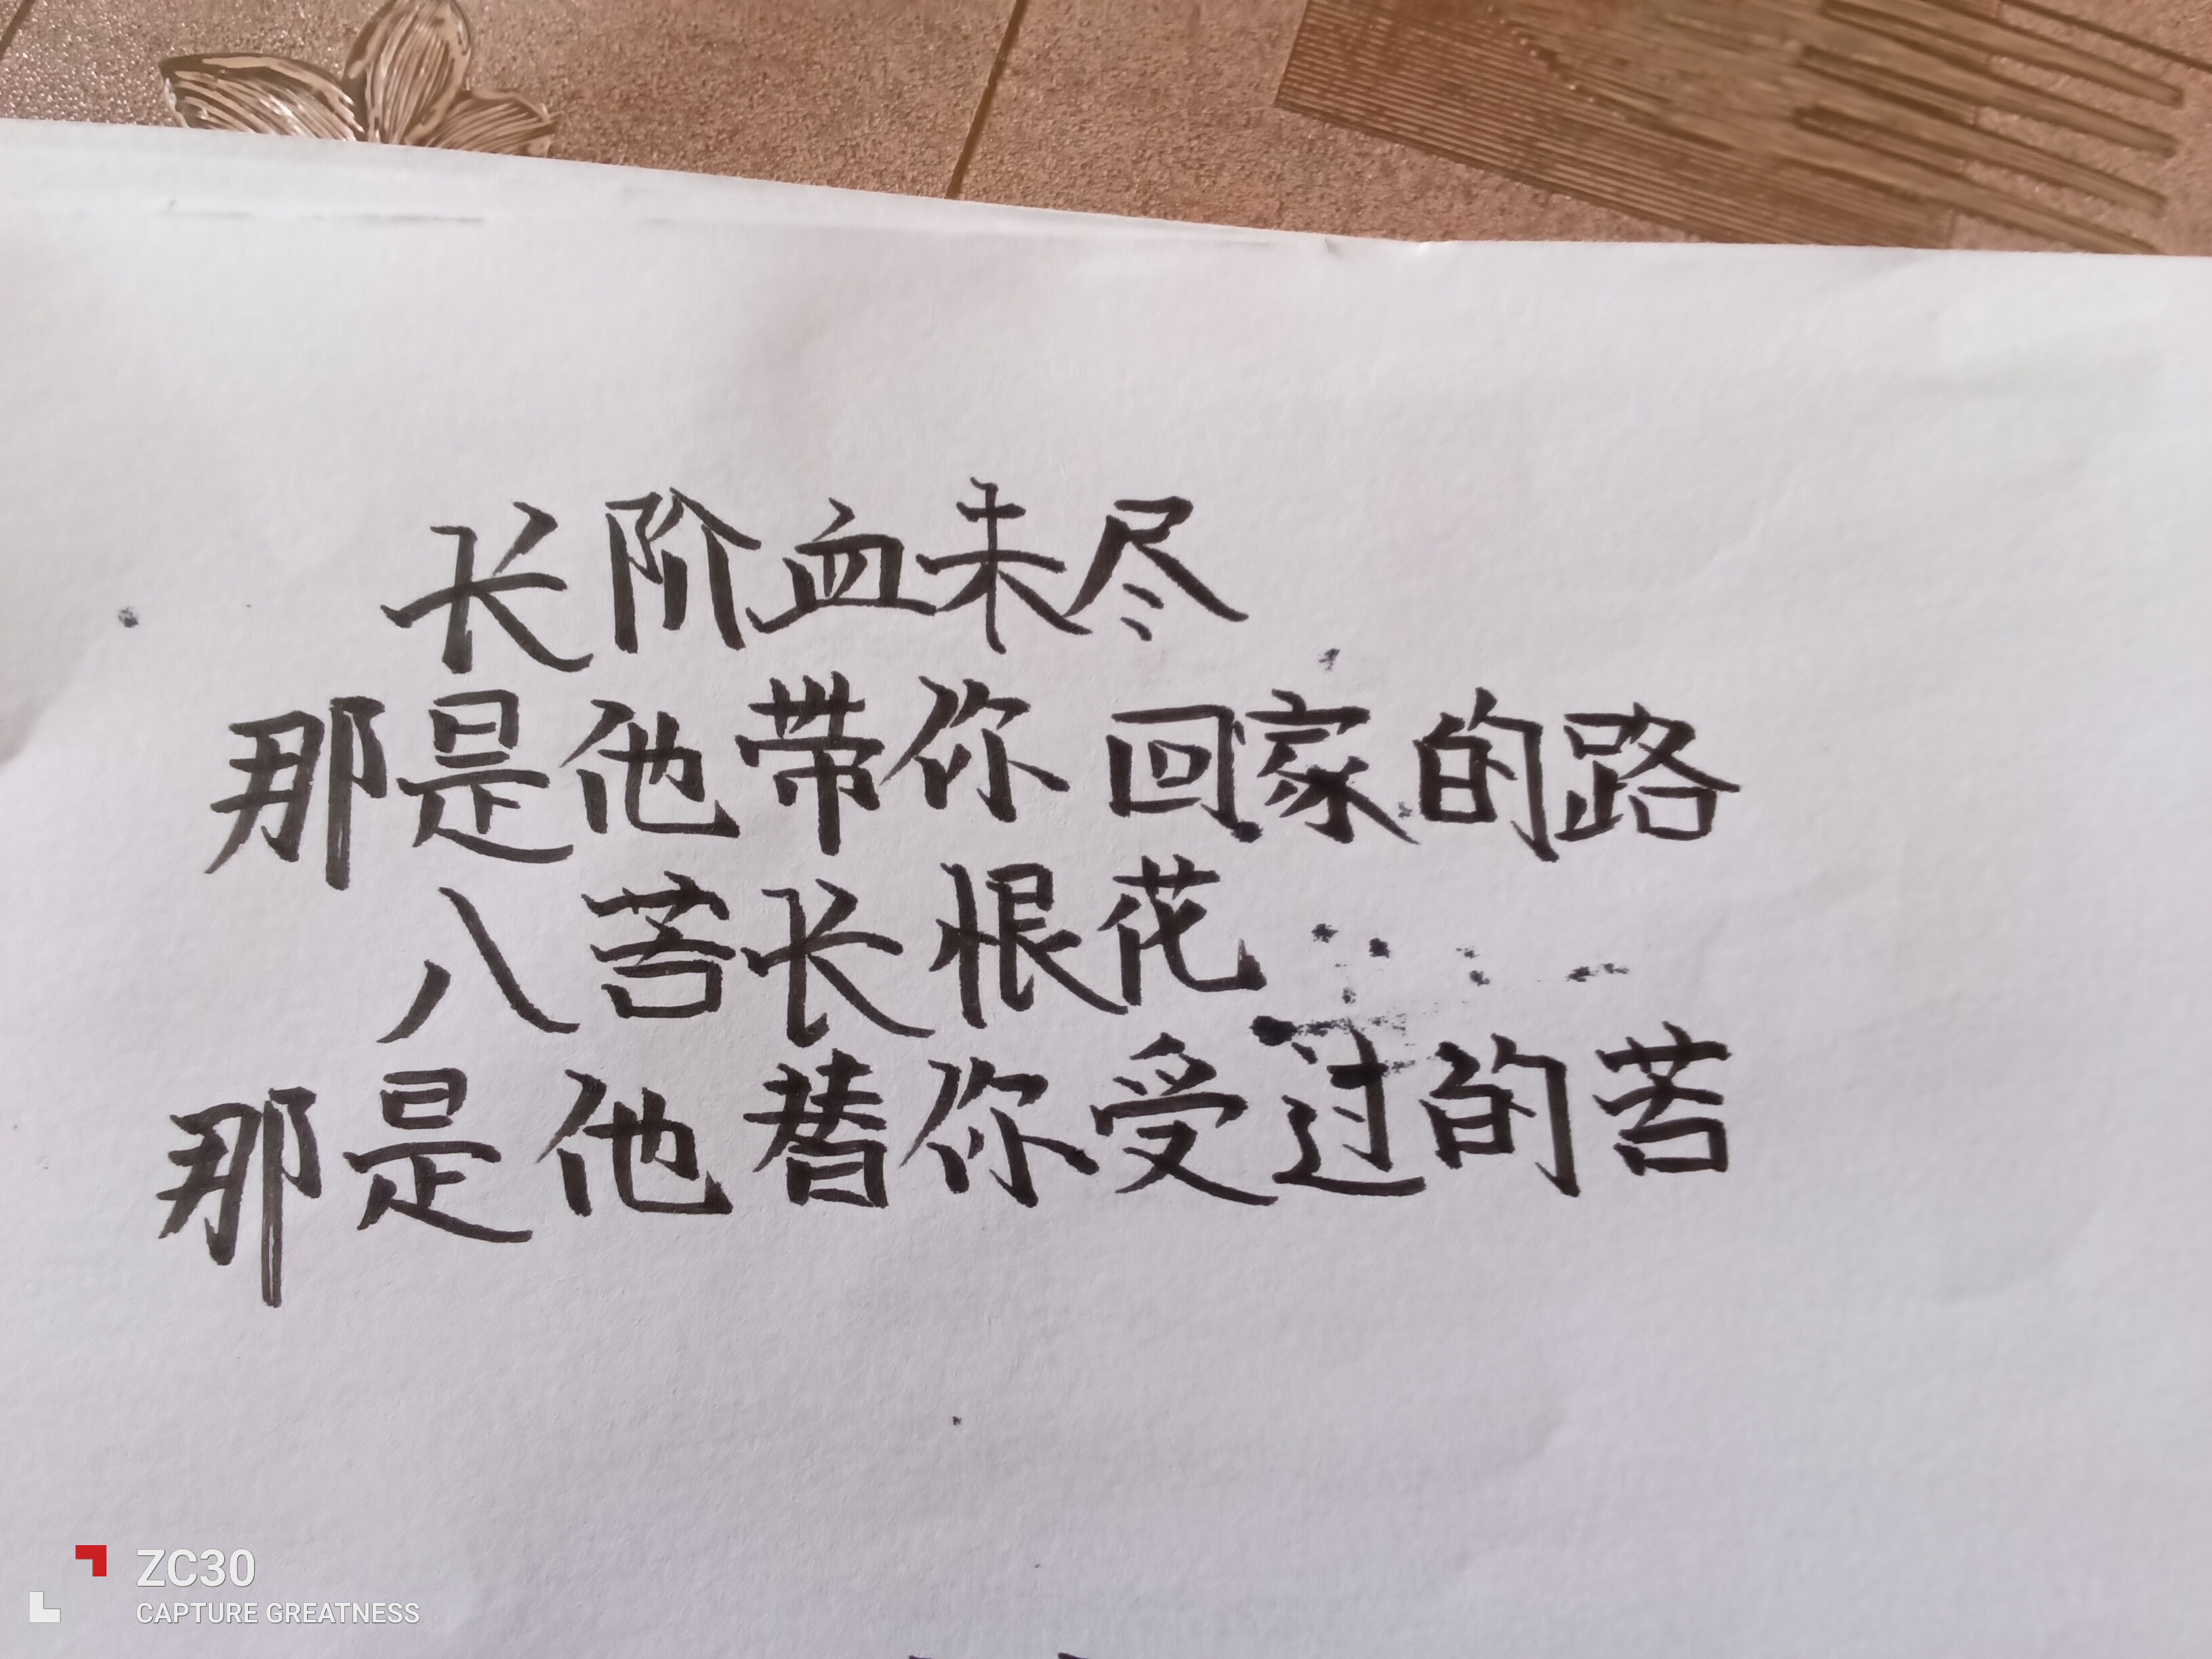 长阶血未尽
那是他带你回家的路
八苦长恨花
那是他替你受过的苦
ZC30
CAPTURE GREATNESS